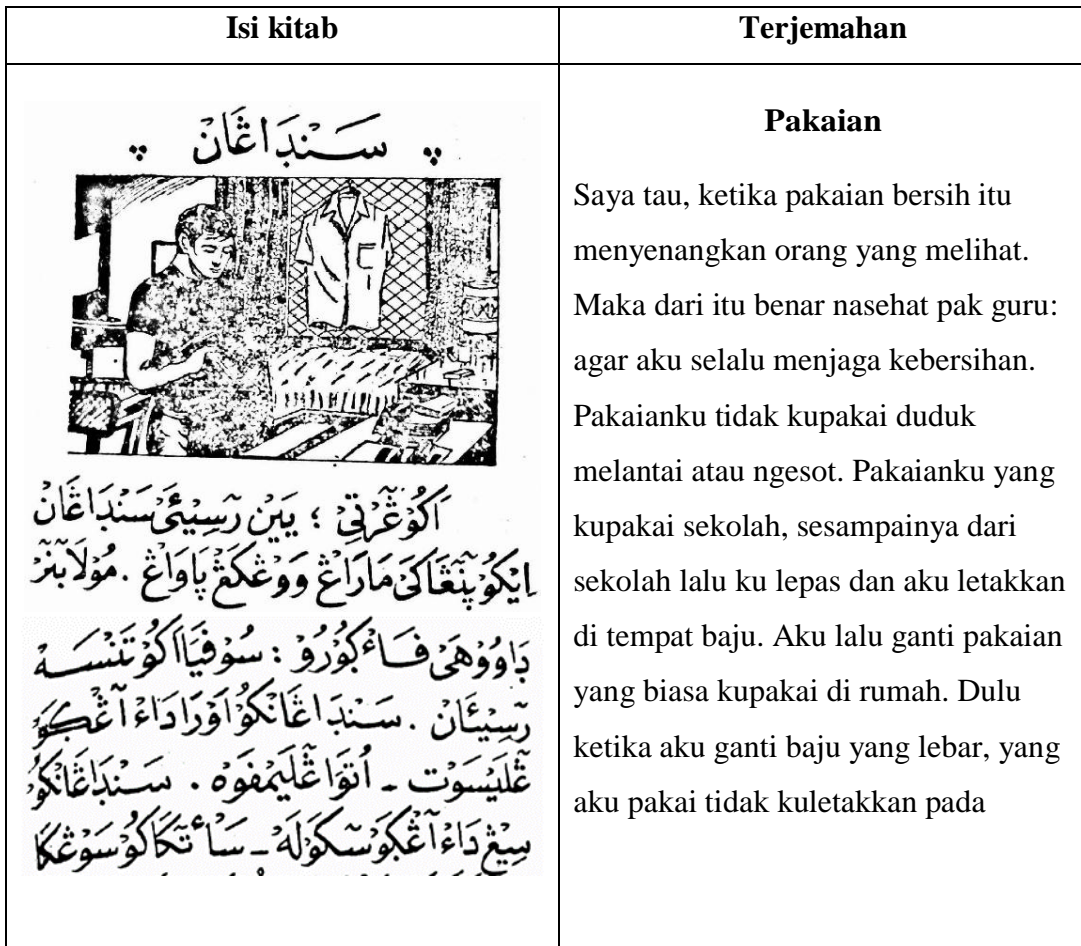 Isi kitab
Terjemahan
سَنْدَاڠَانْ
اَكُوْ ڠَٓرْتِيْ ؛ يَيْن رَٓسِيْئَىْ سَنْدَاڠَانْ
اِيْكُوْ پَٓنَڠَاكَىْ مَارَاڠْ وَوْڠكَڠْ پَاوَاڠْ . مُوْلَا بَٓنَٓرْ
دَاوُوْهَىْ فَاءْ ڮُوْرُوْ : سُوْفَيَا اَكُوْ تَنْسَـهْ
رَٓسِيْئَانْ . سَنْدَاڠَانْكُوْ اَوْرَا دَاءْ آڠْڮَوْ
ڠْلَيْسَوْت - اُتَوَا ڠْلَيْمْفَوْه . سَنْدَاڠَانْكُوْ
سِيْڠْ دَاءْ آڠْڮَوْ سَٓكَوْلَهْ - سَاءْ تَٓكَاكُوْ سَوْڠْكَا
Pakaian
Saya tau, ketika pakaian bersih itu
menyenangkan orang yang melihat.
Maka dari itu benar nasehat pak guru:
agar aku selalu menjaga kebersihan.
Pakaianku tidak kupakai duduk
melantai atau ngesot. Pakaianku yang
kupakai sekolah, sesampainya dari
sekolah lalu ku lepas dan aku letakkan
di tempat baju. Aku lalu ganti pakaian
yang biasa kupakai di rumah. Dulu
ketika aku ganti baju yang lebar, yang
aku pakai tidak kuletakkan pada